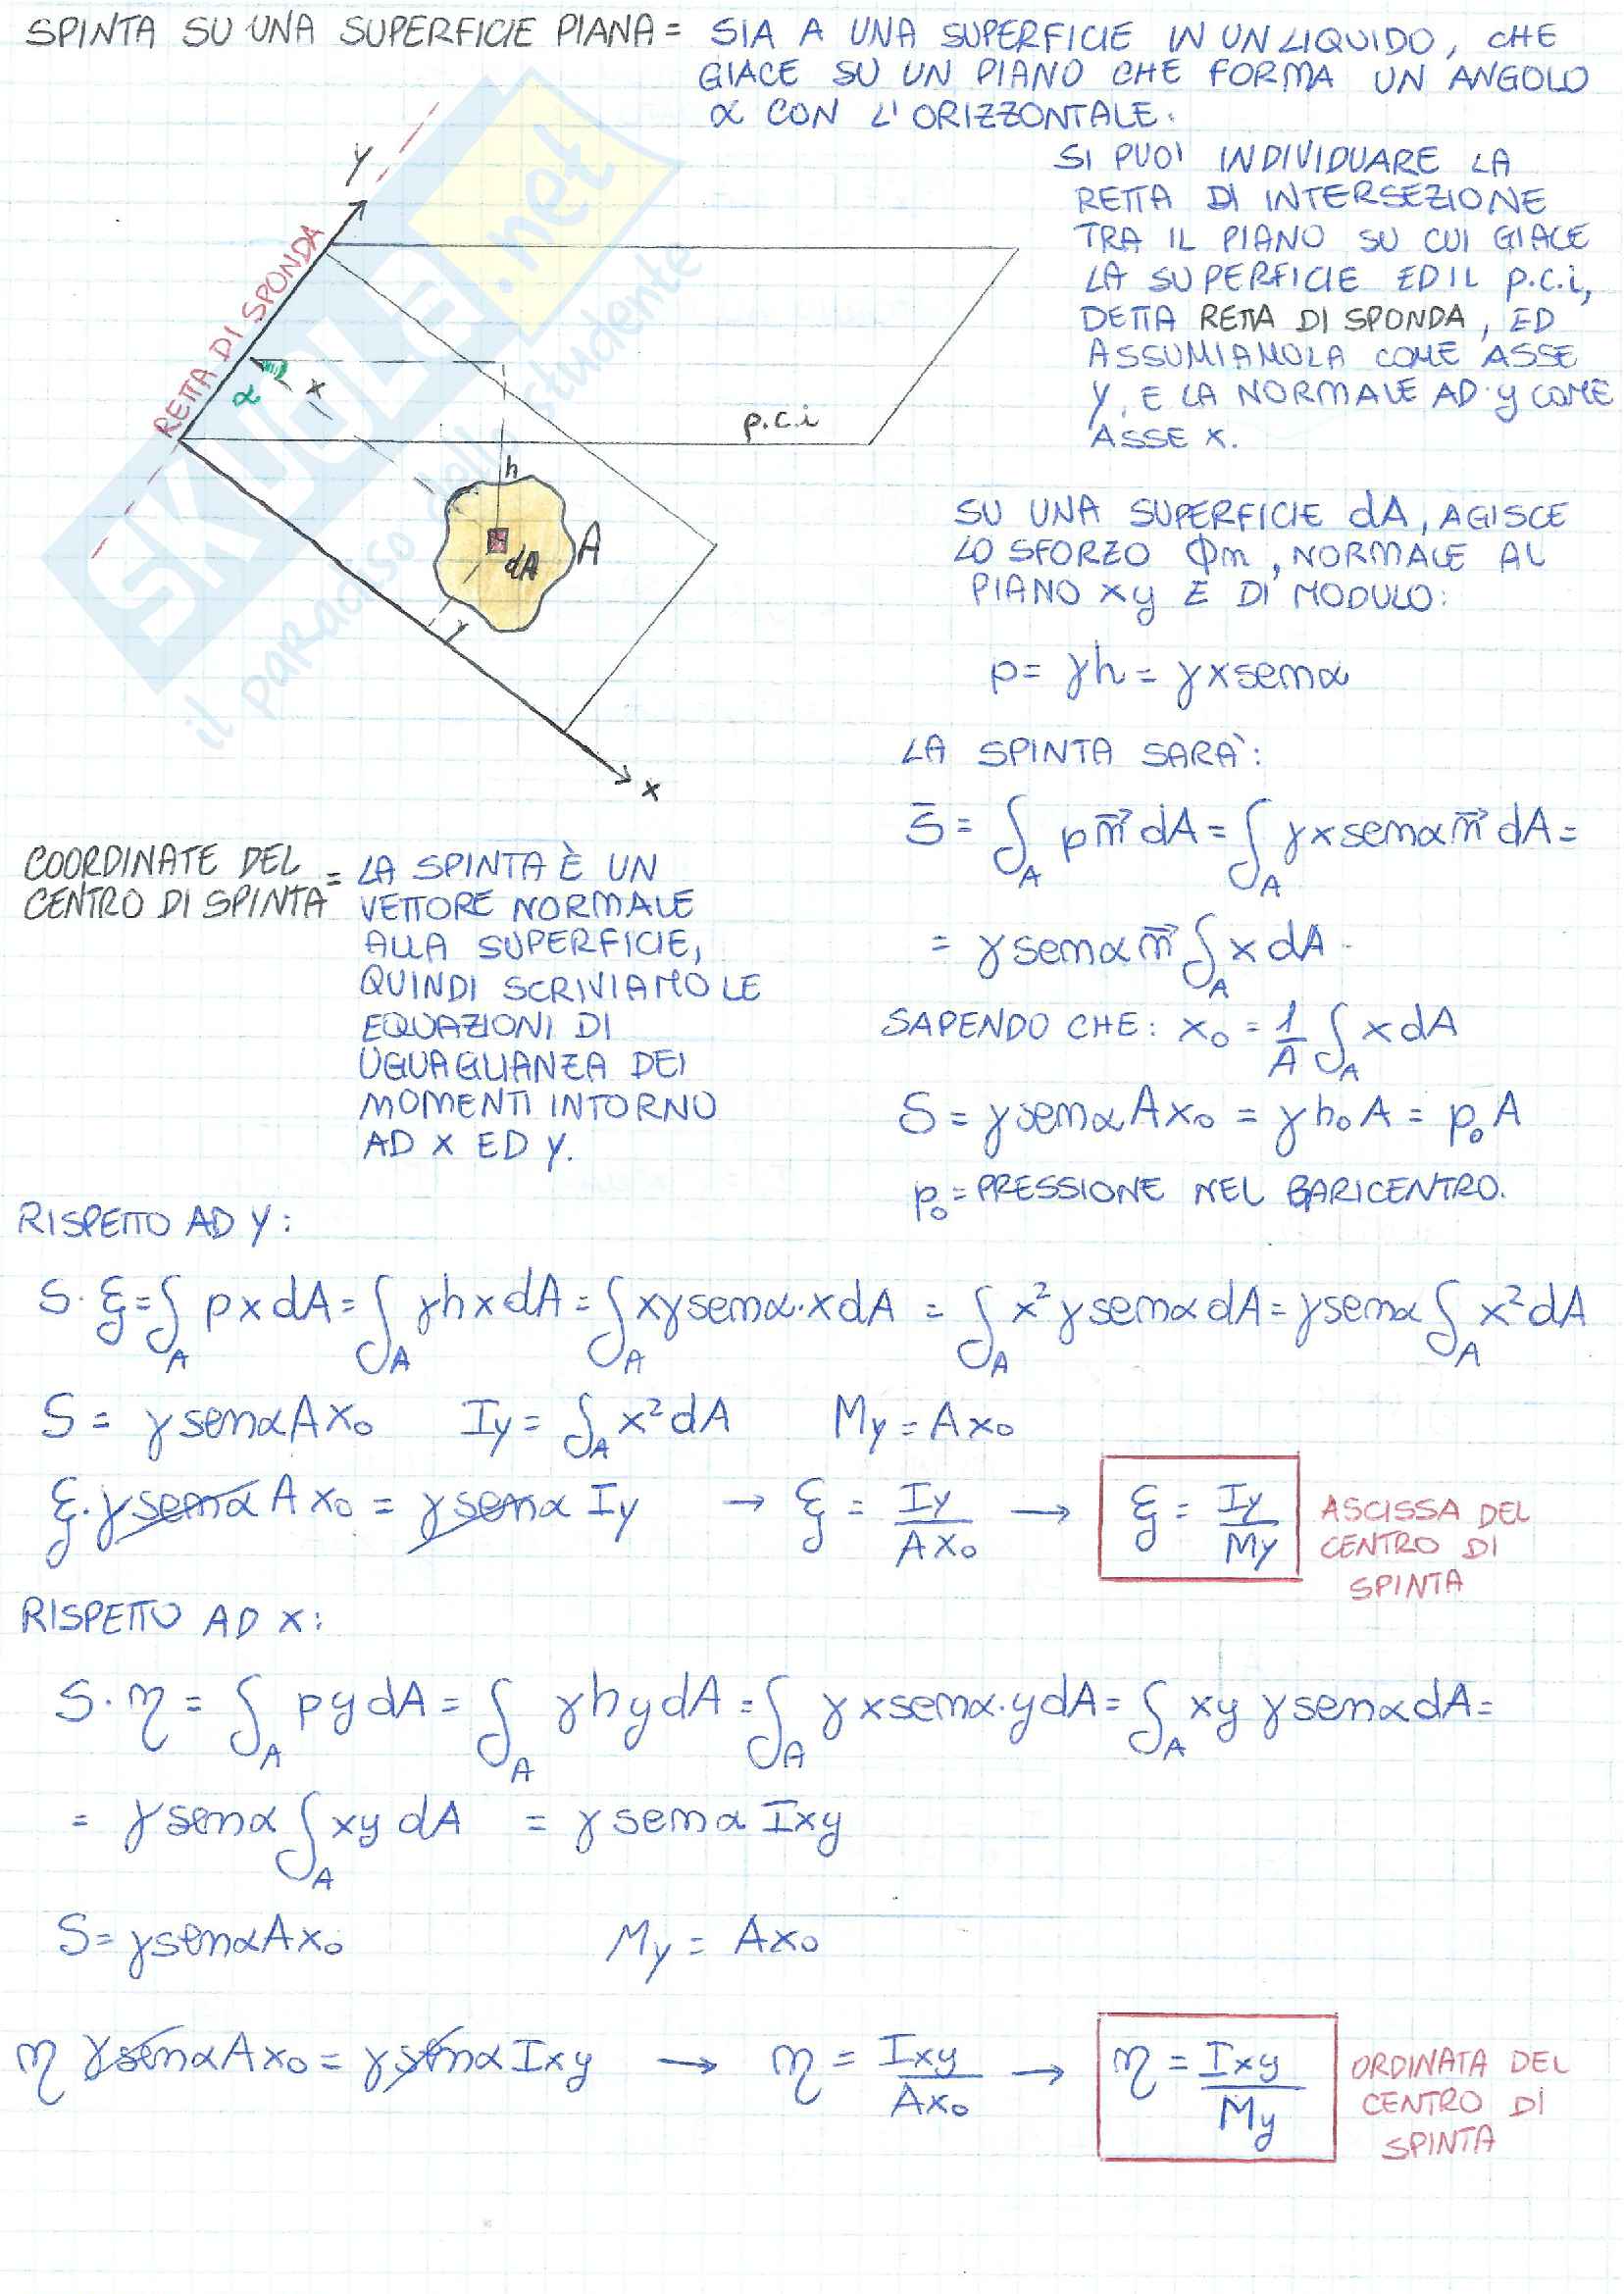 SPINTA SU UNA SUPERFICIE PIANA = SIA A UNA SUPERFICIE IN UN LIQUIDO, CHE
GIACE SU UN PIANO CHE FORMA UN ANGOLO
α CON L'ORIZZONTALE.
SI PUO' INDIVIDUARE LA
RETTA DI INTERSEZIONE
TRA IL PIANO SU CUI GIACE
LA SUPERFICIE ED IL p.c.i,
DETTA RETTA DI SPONDA, ED
ASSUMIAMOLA COME ASSE
Y, E LA NORMALE AD y COME
ASSE X.
Y
RETTA DI SPONDA
α
x
p.c.i
h
A
dA
y
x
SKUOLA.net
il paradiso dello studente
SU UNA SUPERFICIE dA, AGISCE
LO SFORZO Φn, NORMALE AL
PIANO xy E DI MODULO:
p = γh = γxsenα
LA SPINTA SARÀ:
S̄ = ∫_A p n⃗ dA = ∫_A γxsenα n⃗ dA =
= γsenα n⃗ ∫_A x dA
SAPENDO CHE: x₀ = 1/A ∫_A x dA
S = γsenαAx₀ = γh₀A = p₀A
p₀ = PRESSIONE NEL BARICENTRO.
COORDINATE DEL CENTRO DI SPINTA = LA SPINTA È UN
VETTORE NORMALE
ALLA SUPERFICIE,
QUINDI SCRIVIAMO LE
EQUAZIONI DI
UGUAGLIANZA DEI
MOMENTI INTORNO
AD X ED Y.
RISPETTO AD Y:
S·ξ = ∫_A pxdA = ∫_A γhxdA = ∫_A xγsenα·xdA = ∫_A x²γsenαdA = γsenα ∫_A x²dA
S = γsenαAx₀ Iy = ∫_A x²dA My = Ax₀
ξ·γsenαAx₀ = γsenα Iy → ξ = Iy/Ax₀ → ξ = Iy/My ASCISSA DEL
CENTRO DI
SPINTA
RISPETTO AD X:
S·η = ∫_A pydA = ∫_A γhydA = ∫_A γxsenα·ydA = ∫_A xy γsenαdA =
= γsenα ∫_A xy dA = γsenα Ixy
S = γsenαAx₀ My = Ax₀
η γsenαAx₀ = γsenαIxy → η = Ixy/Ax₀ → η = Ixy/My ORDINATA DEL
CENTRO DI
SPINTA